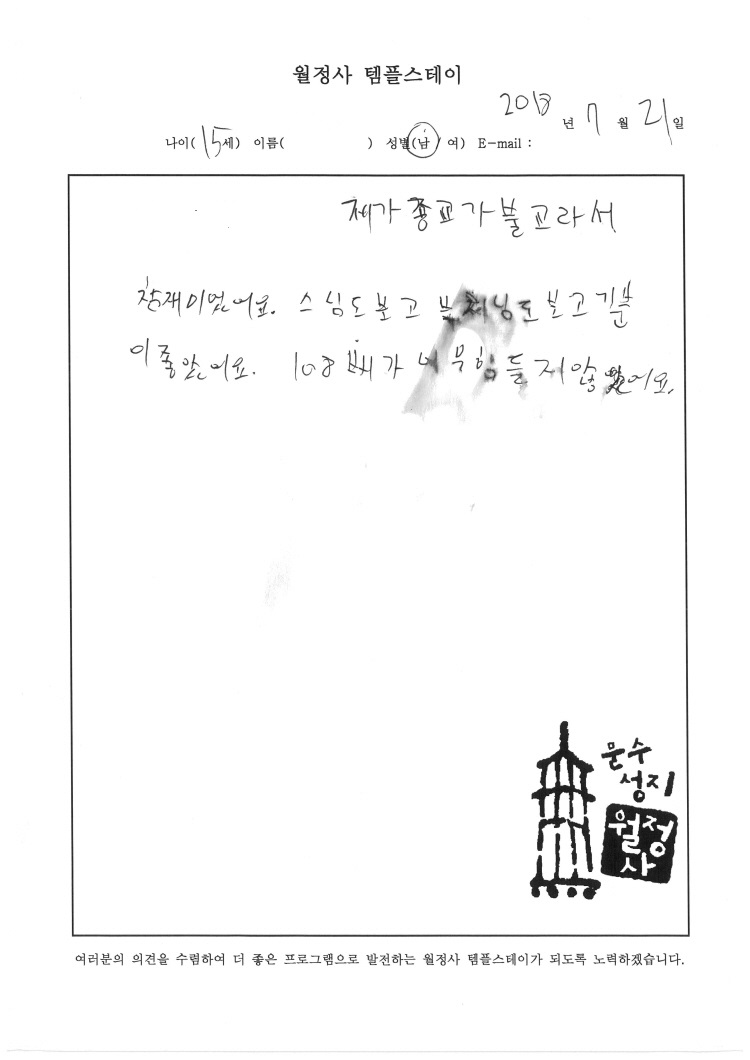 월정사 템플스테이
2018 년 7 월 21 일
나이( 15 세) 이름( ) 성별(남 / 여) E-mail :
제가 종교가 불교라서
참재미있었어요. 스님도 보고 부처님도 보고 기분
이 좋았어요. 108배가 너무 힘들지 않았어요.
문수
성지
월정
사
여러분의 의견을 수렴하여 더 좋은 프로그램으로 발전하는 월정사 템플스테이가 되도록 노력하겠습니다.